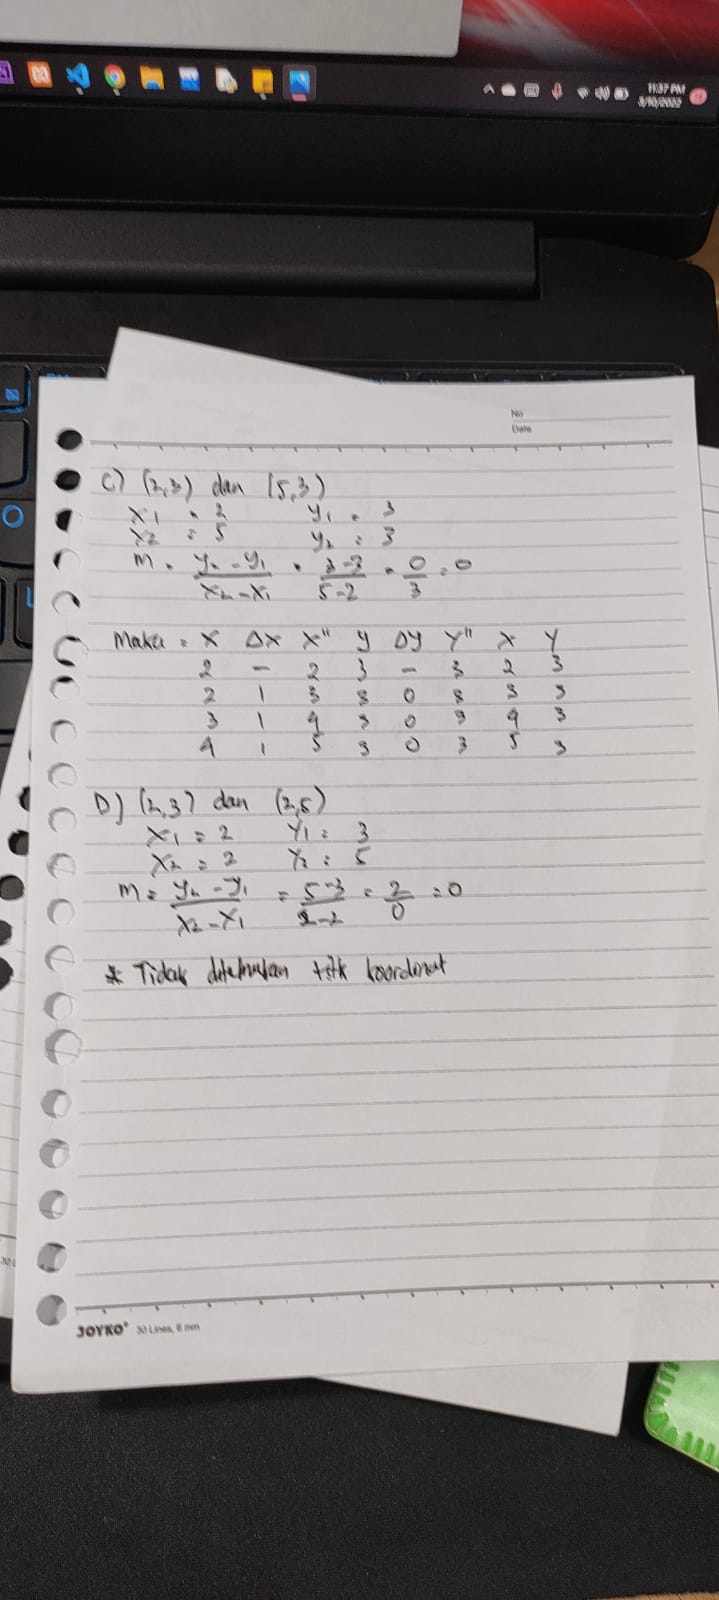 11:37 PM
3/10/2022
No
Date
C) (2,3) dan (5,3)
X1 = 2 y1 = 3
X2 = 5 y2 = 3
m = y2 - y1 / x2 - x1 = 3-3 / 5-2 = 0 / 3 = 0
Maka = X ΔX X" y Δy Y" X Y
2 - 2 3 - 3 2 3
2 1 3 3 0 3 3 3
3 1 4 3 0 3 4 3
4 1 5 3 0 3 5 3
D) (2,3) dan (2,5)
X1 = 2 Y1 = 3
X2 = 2 Y2 = 5
m = y2 - y1 / X2 - X1 = 5-3 / 2-2 = 2 / 0 = 0
* Tidak ditemukan titik koordinat
JOYKO® 30 Lines, 8 mm